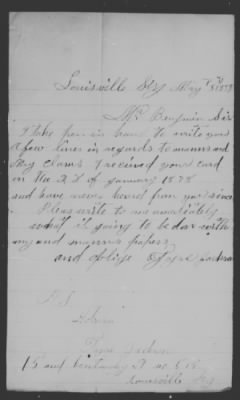 Louisville Ky May 8th 1878
Mr. Benjamin Sir
I take pen in han to write you
a few lines in regards to manns and
My claims I received your card
in the 22 of January 1878
and have never heard from you since
Please write to me imediately
what is going to be don with
my and manns papers
and oblige Tyre Jackson
P S
Adress
Tyre Jackson
15 and Kentucky St no 515
Louisville Ky